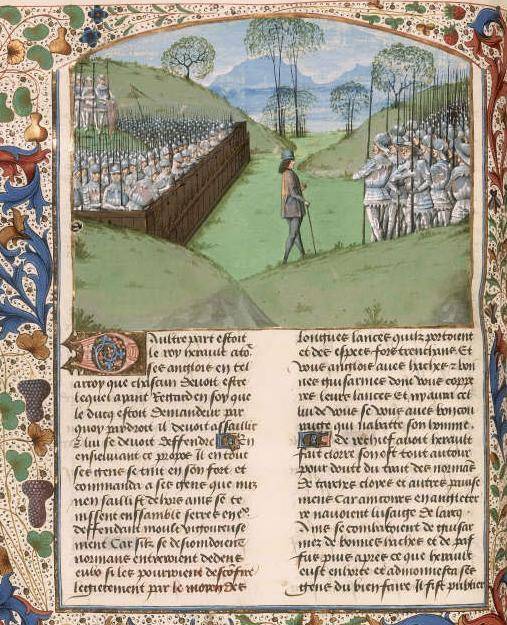 Daultre part estoit
le roy herault atot
ses anglois en tel
arroy que chascun devoit estre
lequel ayant regard en soy que
le duc estoit demandeur par
quoy pardroit il devoit assaillir
Et lui se devoit deffendre En
ensieuvant ce propos il en tout
ses gens se tint en son fort et
commanda a ses gens que nulz
nen saillist dehors ains se te
nissent ensamble serrez en eulx
deffendant moult vigoureuse
ment Car silz se desioindoient
normans entreroient dedens
entre si les pourroient desconfire
legierement par le moyen des
longues lances quilz portoient
et des espees fort trenchans Et
vous anglois avez haches et bon
nes guisarmes dont vous coppe
rez leurs lances Et naura cel
lui de vous se vous avez bon coeur
qui nabatte son homme
De rechief avoit herault
fait clorre son ost tout autour
pour doute du trait des normans
de targes cloyes et autres pavise
mens Car anciennement en angleterre
ne navoient lusaige de larcq
Ains se combatoient de guisar
mez de bonnes haches et de paf
fus puis apres ce que herault
eust enhorte et admonneste ses
gens du bien faire Il fist publier